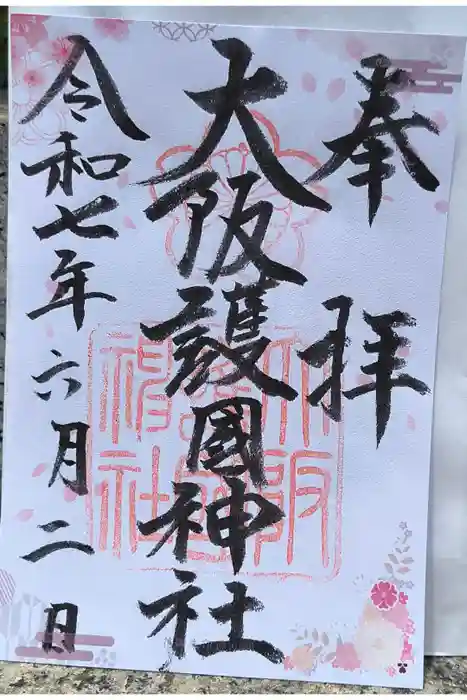 奉拝
大阪護國神社
令和七年六月二日
大阪護国神社